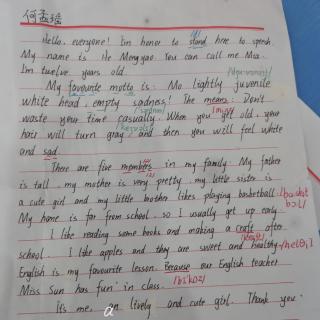 何孟瑶
Hello, everyone! I'm honor to stand here to speak.
My name is He Mengyao. You can call me Mia.
I'm twelve years old.
My favourite motto is: Mo lightly juvenile
white head, empty sadness! The means: Don't
waste your time casually. When you get old, your
hair will turn gray, and then you will feel white
and sad.
There are five members in my family. My father
is tall, my mother is very pretty, my little sister is
a cute girl and my little brother likes playing basketball.
My home is far from school, so I usually get up early.
I like reading some books and making a craft after
school. I like apples and they are sweet and healthy.
English is my favourite lesson. Because our English teacher
Miss Sun has fun in class.
It's me, a lively and cute girl. Thank you.